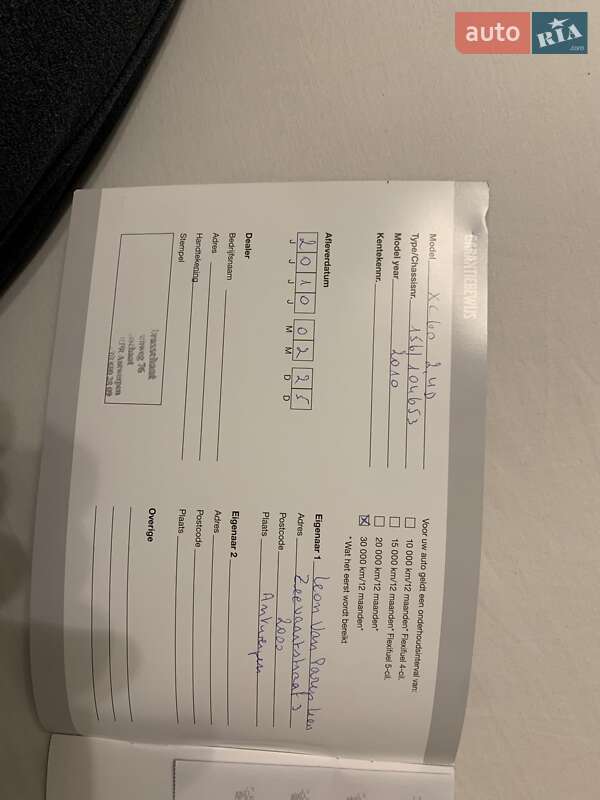 auto RIA .com
GARANTIEBEWIJS
Model XC 60 2,4D
Type/Chassisnr. 156/104653
Model year 2010
Kentekennr.
Afleverdatum
2 0 1 0 0 2 2 5
J J J J M M D D
Dealer
Bedrijfsnaam
Adres
Handtekening
Stempel
Brasschaat
76
Antwerpen
Voor uw auto geldt een onderhoudsinterval van:
10 000 km/12 maanden* Flexifuel 4-cil.
15 000 km/12 maanden* Flexifuel 5-cil.
20 000 km/12 maanden*
30 000 km/12 maanden*
* Wat het eerst wordt bereikt
Eigenaar 1 Leon Van
Adres Zeevaartstraat 3
Postcode 2000
Plaats Antwerpen
Eigenaar 2
Adres
Postcode
Plaats
Overige